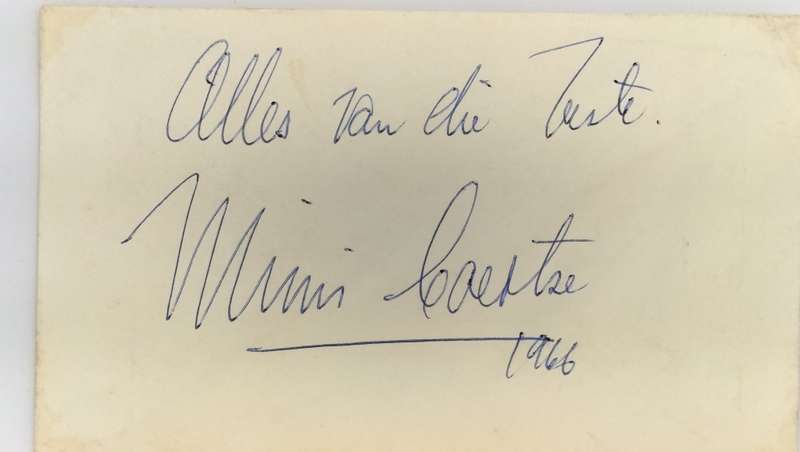 Alles van die beste.
Mimi Coertse
1966